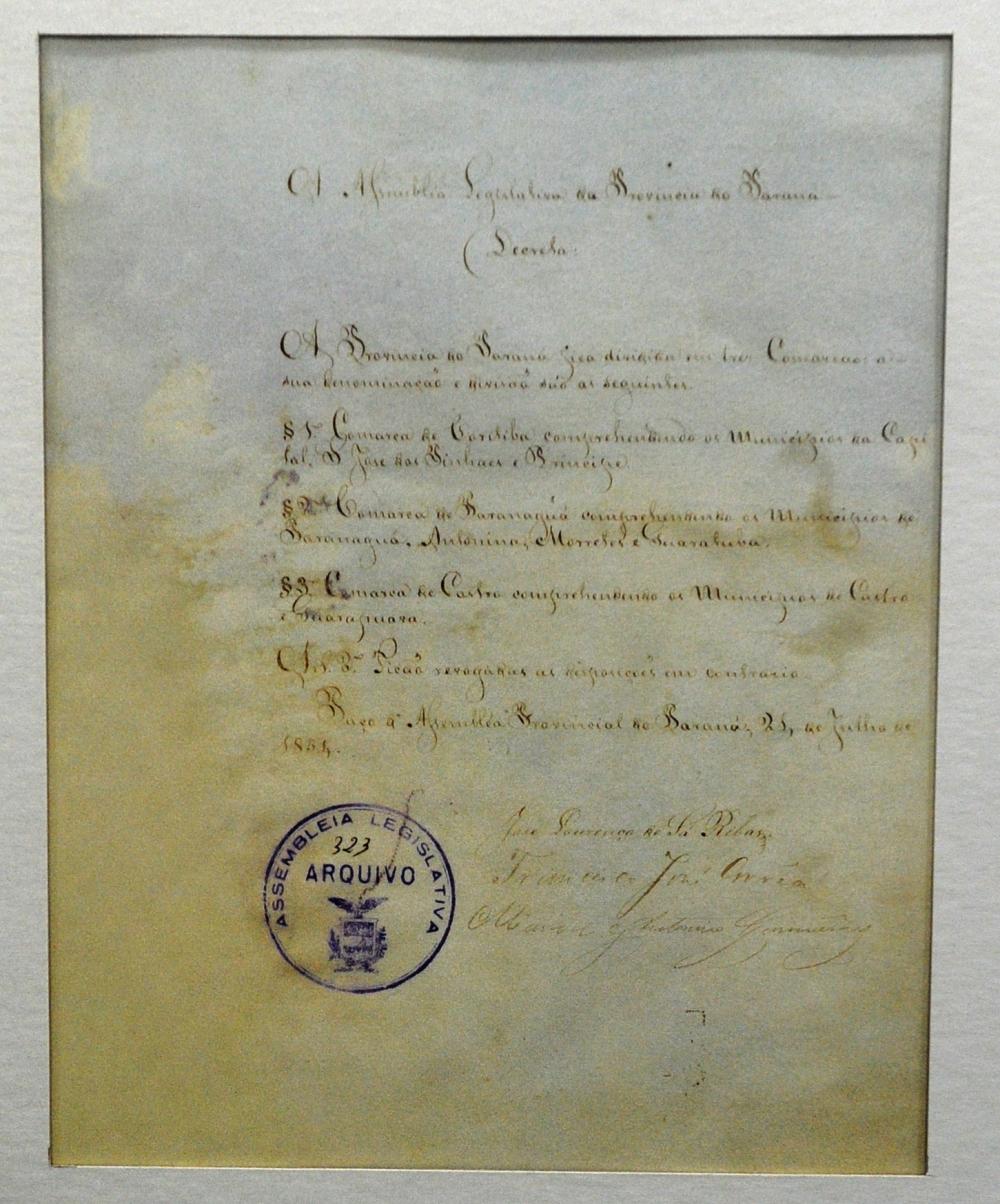 A Assembléa Legislativa da Provincia do Paraná
Decreta:
A Provincia do Paraná fica dividida em tres Comarcas: a
sua denominação e divisão são as seguintes.
§ 1º Comarca de Coritiba comprehendendo os Municipios da Capi
tal, S. Jose dos Pinhaes e Principe
§ 2º Comarca de Paranaguá comprehendendo os Municipios de
Paranaguá, Antonina, Morretes e Guaratuba.
§ 3º Comarca de Castro comprehendendo os Municipios de Castro
e Guarapuava.
Art. 2º Ficão revogadas as disposições em contrario.
Paço d'Assembléa Provincial do Paraná, 21, de Julho de
1854.
José Lourenço de Sá Ribas
Francisco José Corrêa
Antonio Guimarães
ASSEMBLEIA LEGISLATIVA
323
ARQUIVO